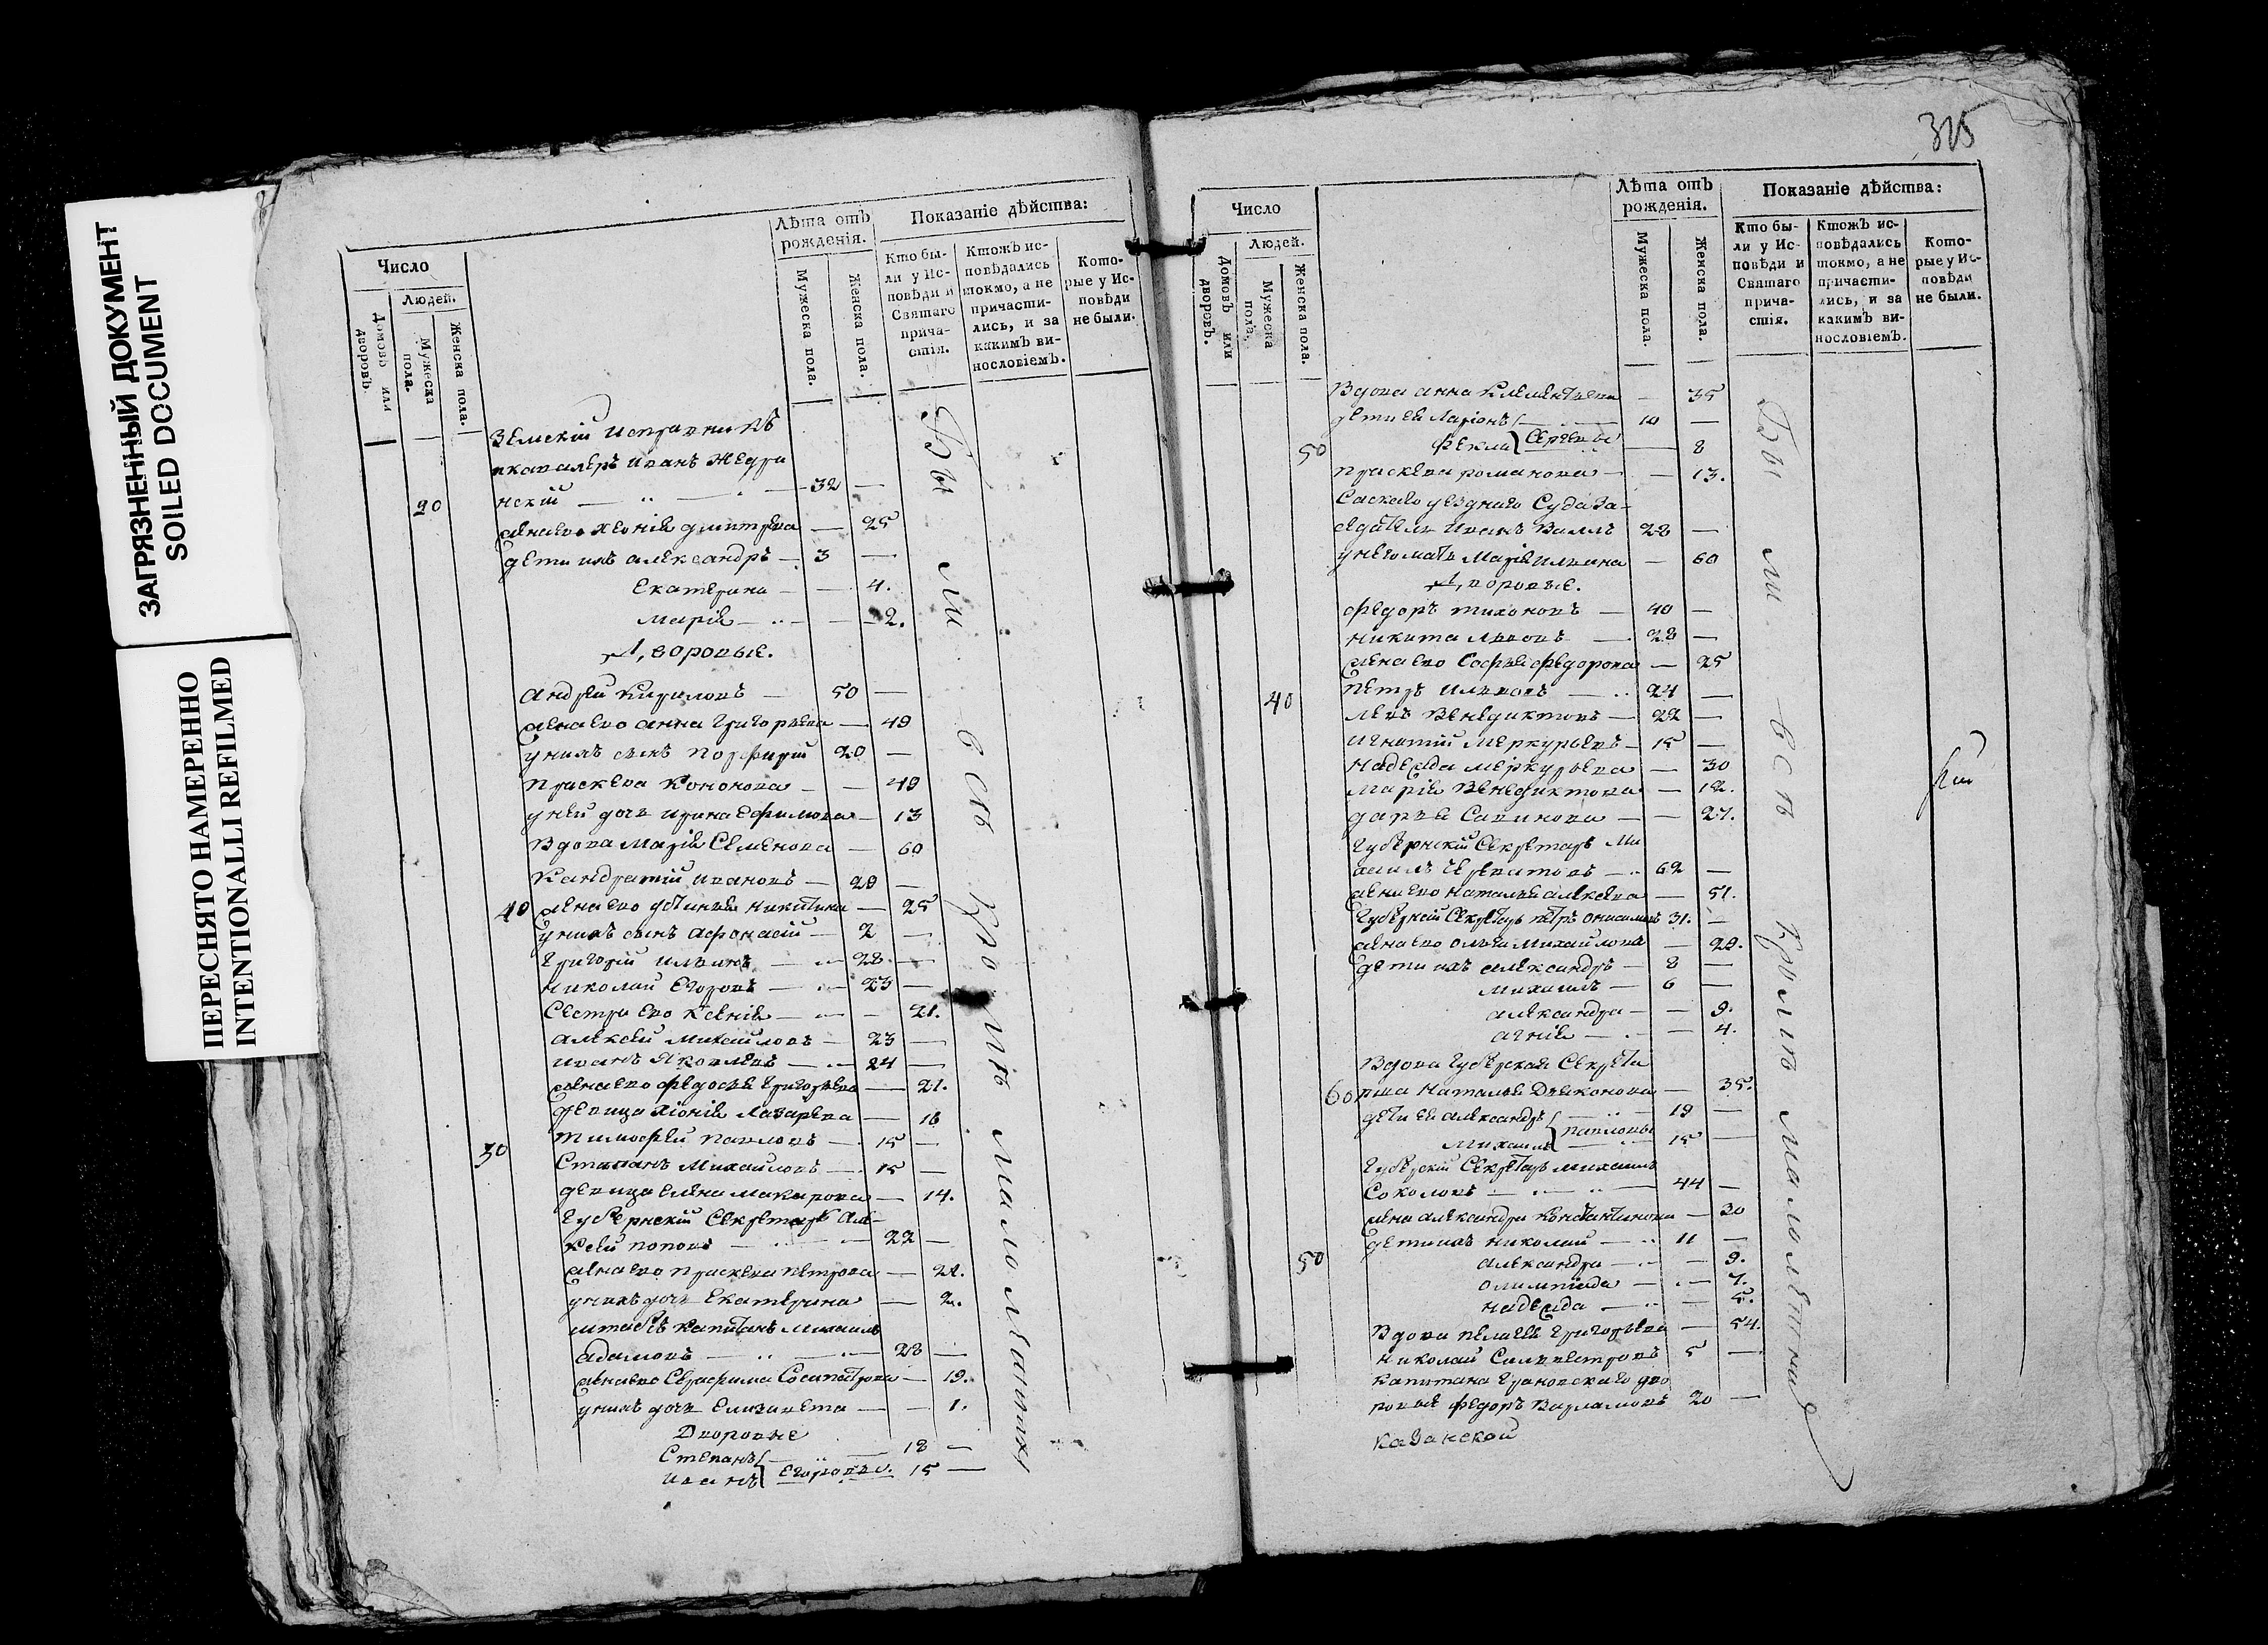 ЗАГРЯЗНЕННЫЙ ДОКУМЕНТ
SOILED DOCUMENT
ПЕРЕСНЯТО НАМЕРЕННО
INTENTIONALLI REFILMED
Число
Людей.
Домовъ или дворовъ.
Мужеска пола.
Женска пола.
Лѣта отъ рожденія.
Мужеска пола.
Женска пола.
Показаніе дѣйства:
Кто бы-
ли у Ис-
повѣди и
Святаго
прича-
стія.
Ктожъ ис-
повѣдались
токмо, а не
причасти-
лись, и за
какимъ ви-
нословіемъ.
Кото-
рые у Ис-
повѣди
не были.
Земскій Исправникъ
икавалеръ иванъ Жедри
20 нскій — 32 —
жена ево хіонія дмитрева — 25
дети ихъ александръ — 3 —
Екатерина — 4.
марія — 2.
Дворовые.
андрей Кириловъ — 50 —
жена ево анна Григорьева — 49
у нихъ сынъ порфирій 20 —
праскева Кононова — 49
у ней дочь ирина ефимова — 13
Вдова Марія Семенова — 60
Кандратій ивановъ — 29 —
40 жена ево устинья никитина — 25
у нихъ сынъ афонасій — 2 —
Григорій ильинъ — 28 —
николай Егоровъ — 23 —
Сестра ево Ксенія — 21.
алексей михаиловъ — 23 —
иванъ Яковлевъ — 24 —
жена ево федосья григорьева — 21.
девица хіонія Лазарева — 16
30 тимофей павловъ — 15 —
Степанъ Михаиловъ — 15 —
девица елена макарова — 14.
Губернскій Секретарь але-
ксей поповъ — 22 —
жена ево праскева петрова — 22.
у нихъ дочь Екатерина — 2.
штабсъ капитанъ михаилъ
адамовъ — 28 —
жена ево Серафима Сосипатрова — 19.
у нихъ дочь Елизавета — 1.
Дворовые
Степанъ — 18 —
иванъ } Егоровы. 15 —
Бы ли всѣ кромѣ малолѣтныхъ
315
Число
Людей.
Домовъ или дворовъ.
Мужеска пола.
Женска пола.
Лѣта отъ рожденія.
Мужеска пола.
Женска пола.
Показаніе дѣйства:
Кто бы-
ли у Ис-
повѣди и
Святаго
прича-
стія.
Ктожъ ис-
повѣдались
токмо, а не
причасти-
лись, и за
какимъ ви-
нословіемъ.
Кото-
рые у Ис-
повѣди
не были.
Вдова анна Клементьева — 35
дети ея Ларіонъ — 10 —
50 Фекла } Сергевы — 8
праскева романова — 13.
Саскаго уезднаго Суда за-
седатель иванъ 28 —
у него мать Марія ильина — 60
Дворовые.
федоръ тихоновъ — 40 —
никита львовъ — 28 —
жена ево Софья федорова — 25
40 петръ ильвовъ — 24 —
левъ Венедиктовъ — 22 —
игнатій меркурьевъ — 15 —
надежда меркурьева — 30
Марія Венедиктова — 12.
дарья Савинова — 27.
Губернскій Секретарь Ми
хаилъ — 62 —
жена ево наталья алексева — 51.
Губернскій Секретарь петръ онисимовъ 31. —
жена ево ольга михаилова — 29.
дети ихъ александръ — 8 —
михаилъ — 6 —
александра — 9.
агнія — 4.
Вдова Губернская Секрета
60 рша наталья Дьяконова — 35.
дети ея александръ — 19 —
михаилъ } павловы 15 —
Губернскій Секретарь михаилъ
Соколовъ — 44 —
жена александра константинова — 30
дети ихъ николай — 11 —
50 александра — 9.
олимпіада — 7.
надежда — 5.
Вдова пелагея Григорьева — 54.
николай Сильвестровъ 5 —
капитана Грановскаго дво
ровые федоръ Варламовъ 20 —
казанской
Бы ли всѣ кромѣ малолѣтныхъ